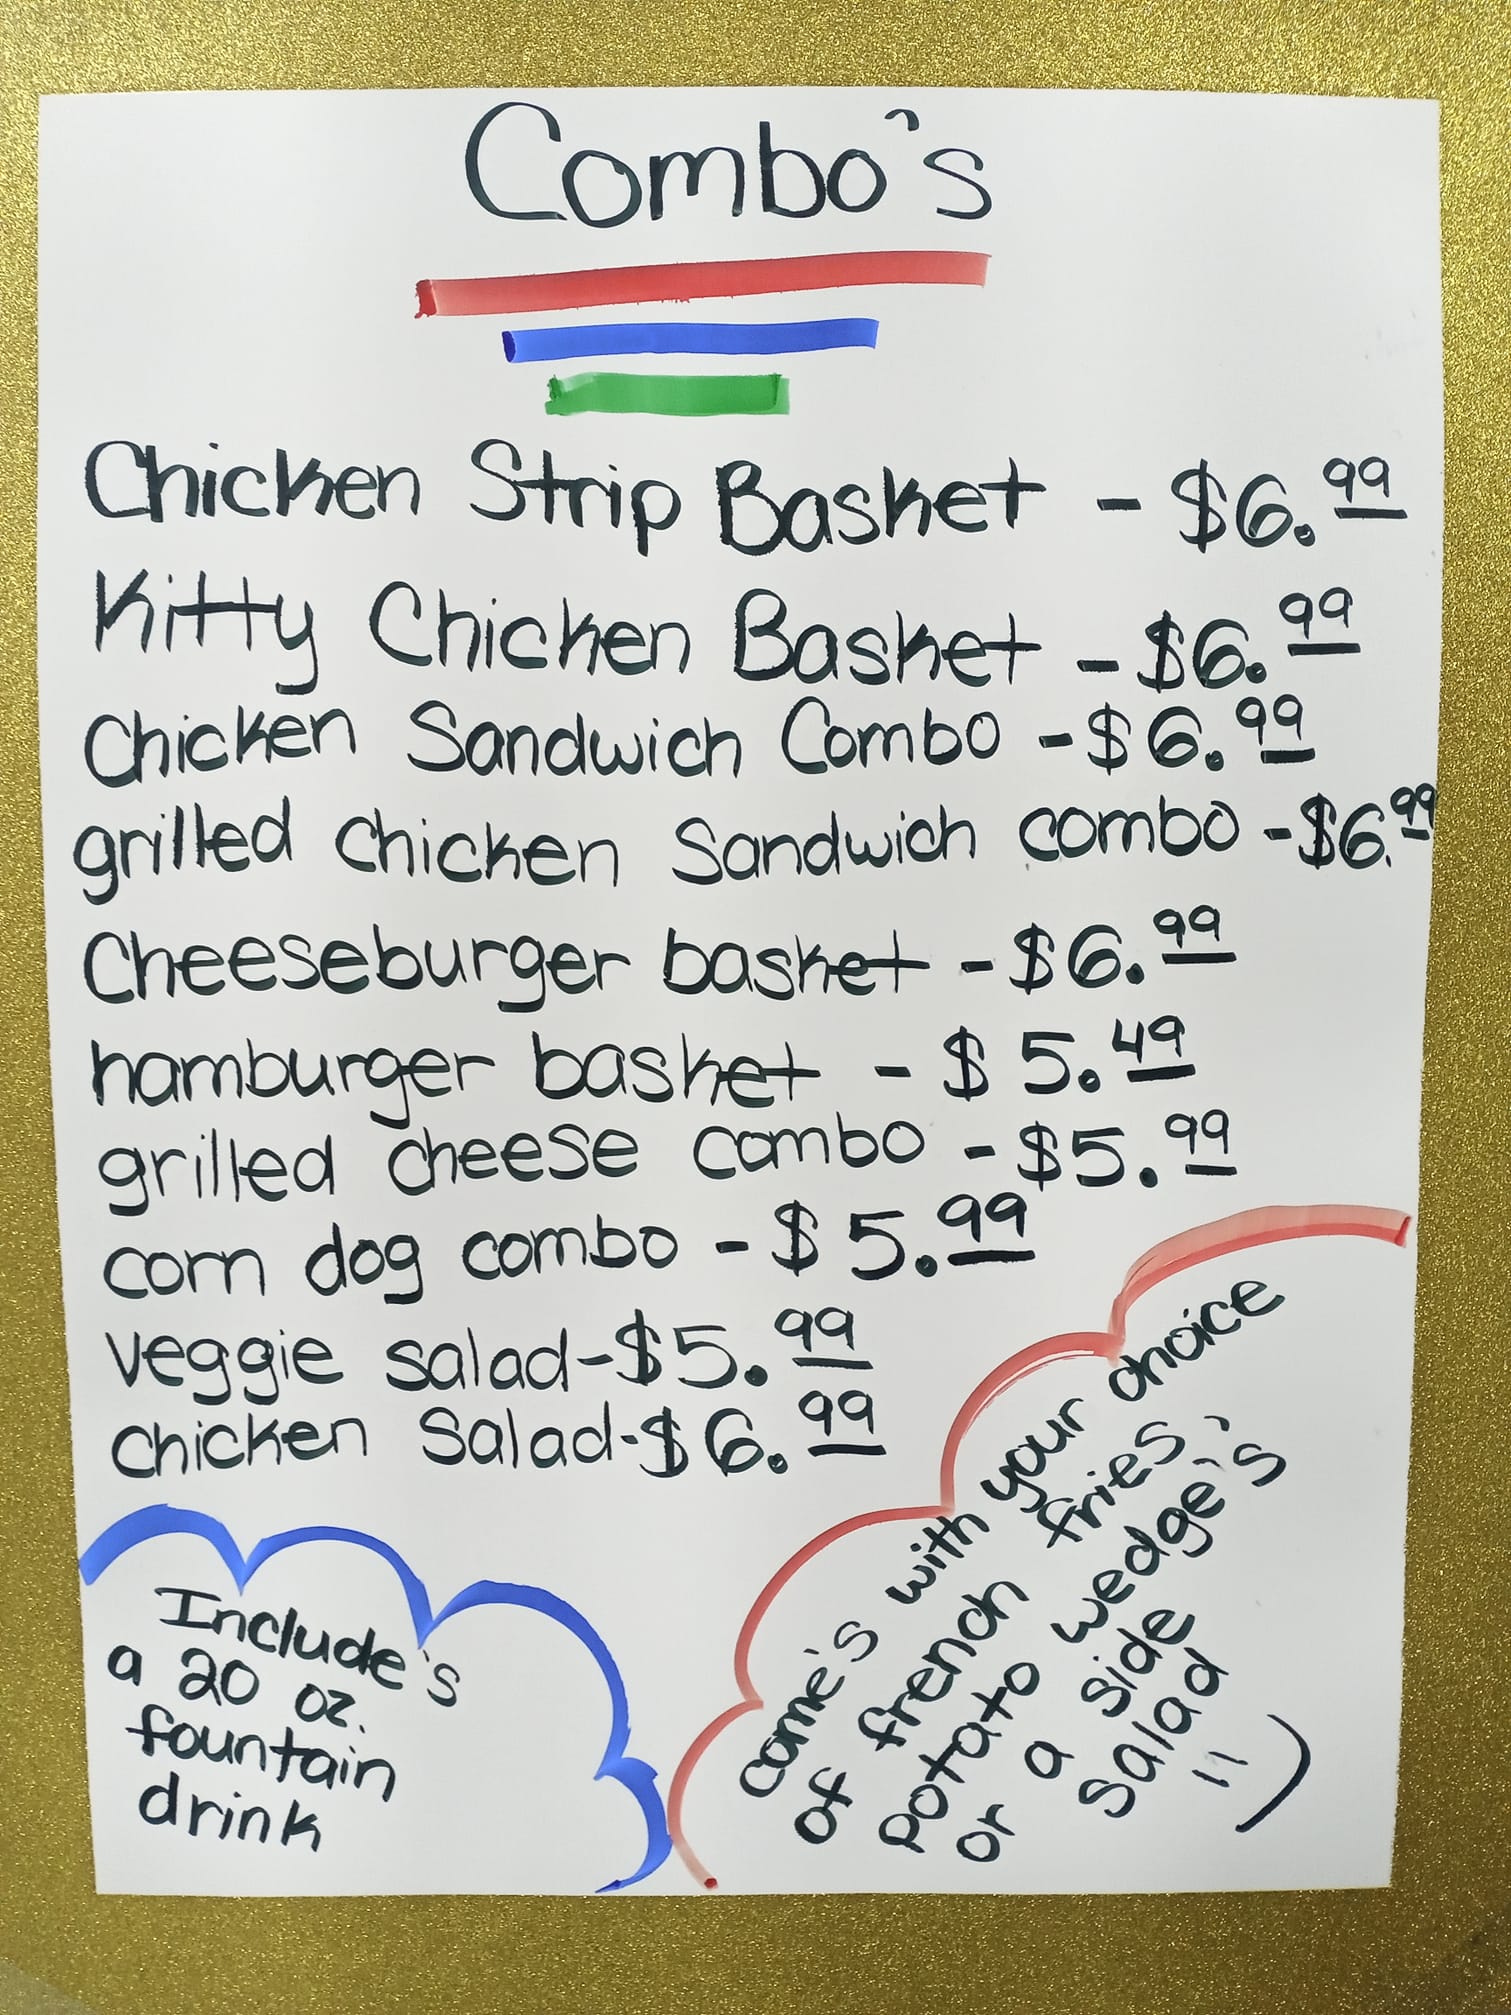 Combo's
Chicken Strip Basket - $6.99
Kitty Chicken Basket - $6.99
Chicken Sandwich Combo - $6.99
grilled chicken Sandwich combo - $6.99
Cheeseburger basket - $6.99
hamburger basket - $5.49
grilled cheese combo - $5.99
corn dog combo - $5.99
veggie salad - $5.99
chicken Salad - $6.99
Include's
a 20 oz.
fountain
drink
come's with your choice
of french fries,
potato wedge's
or a side
salad